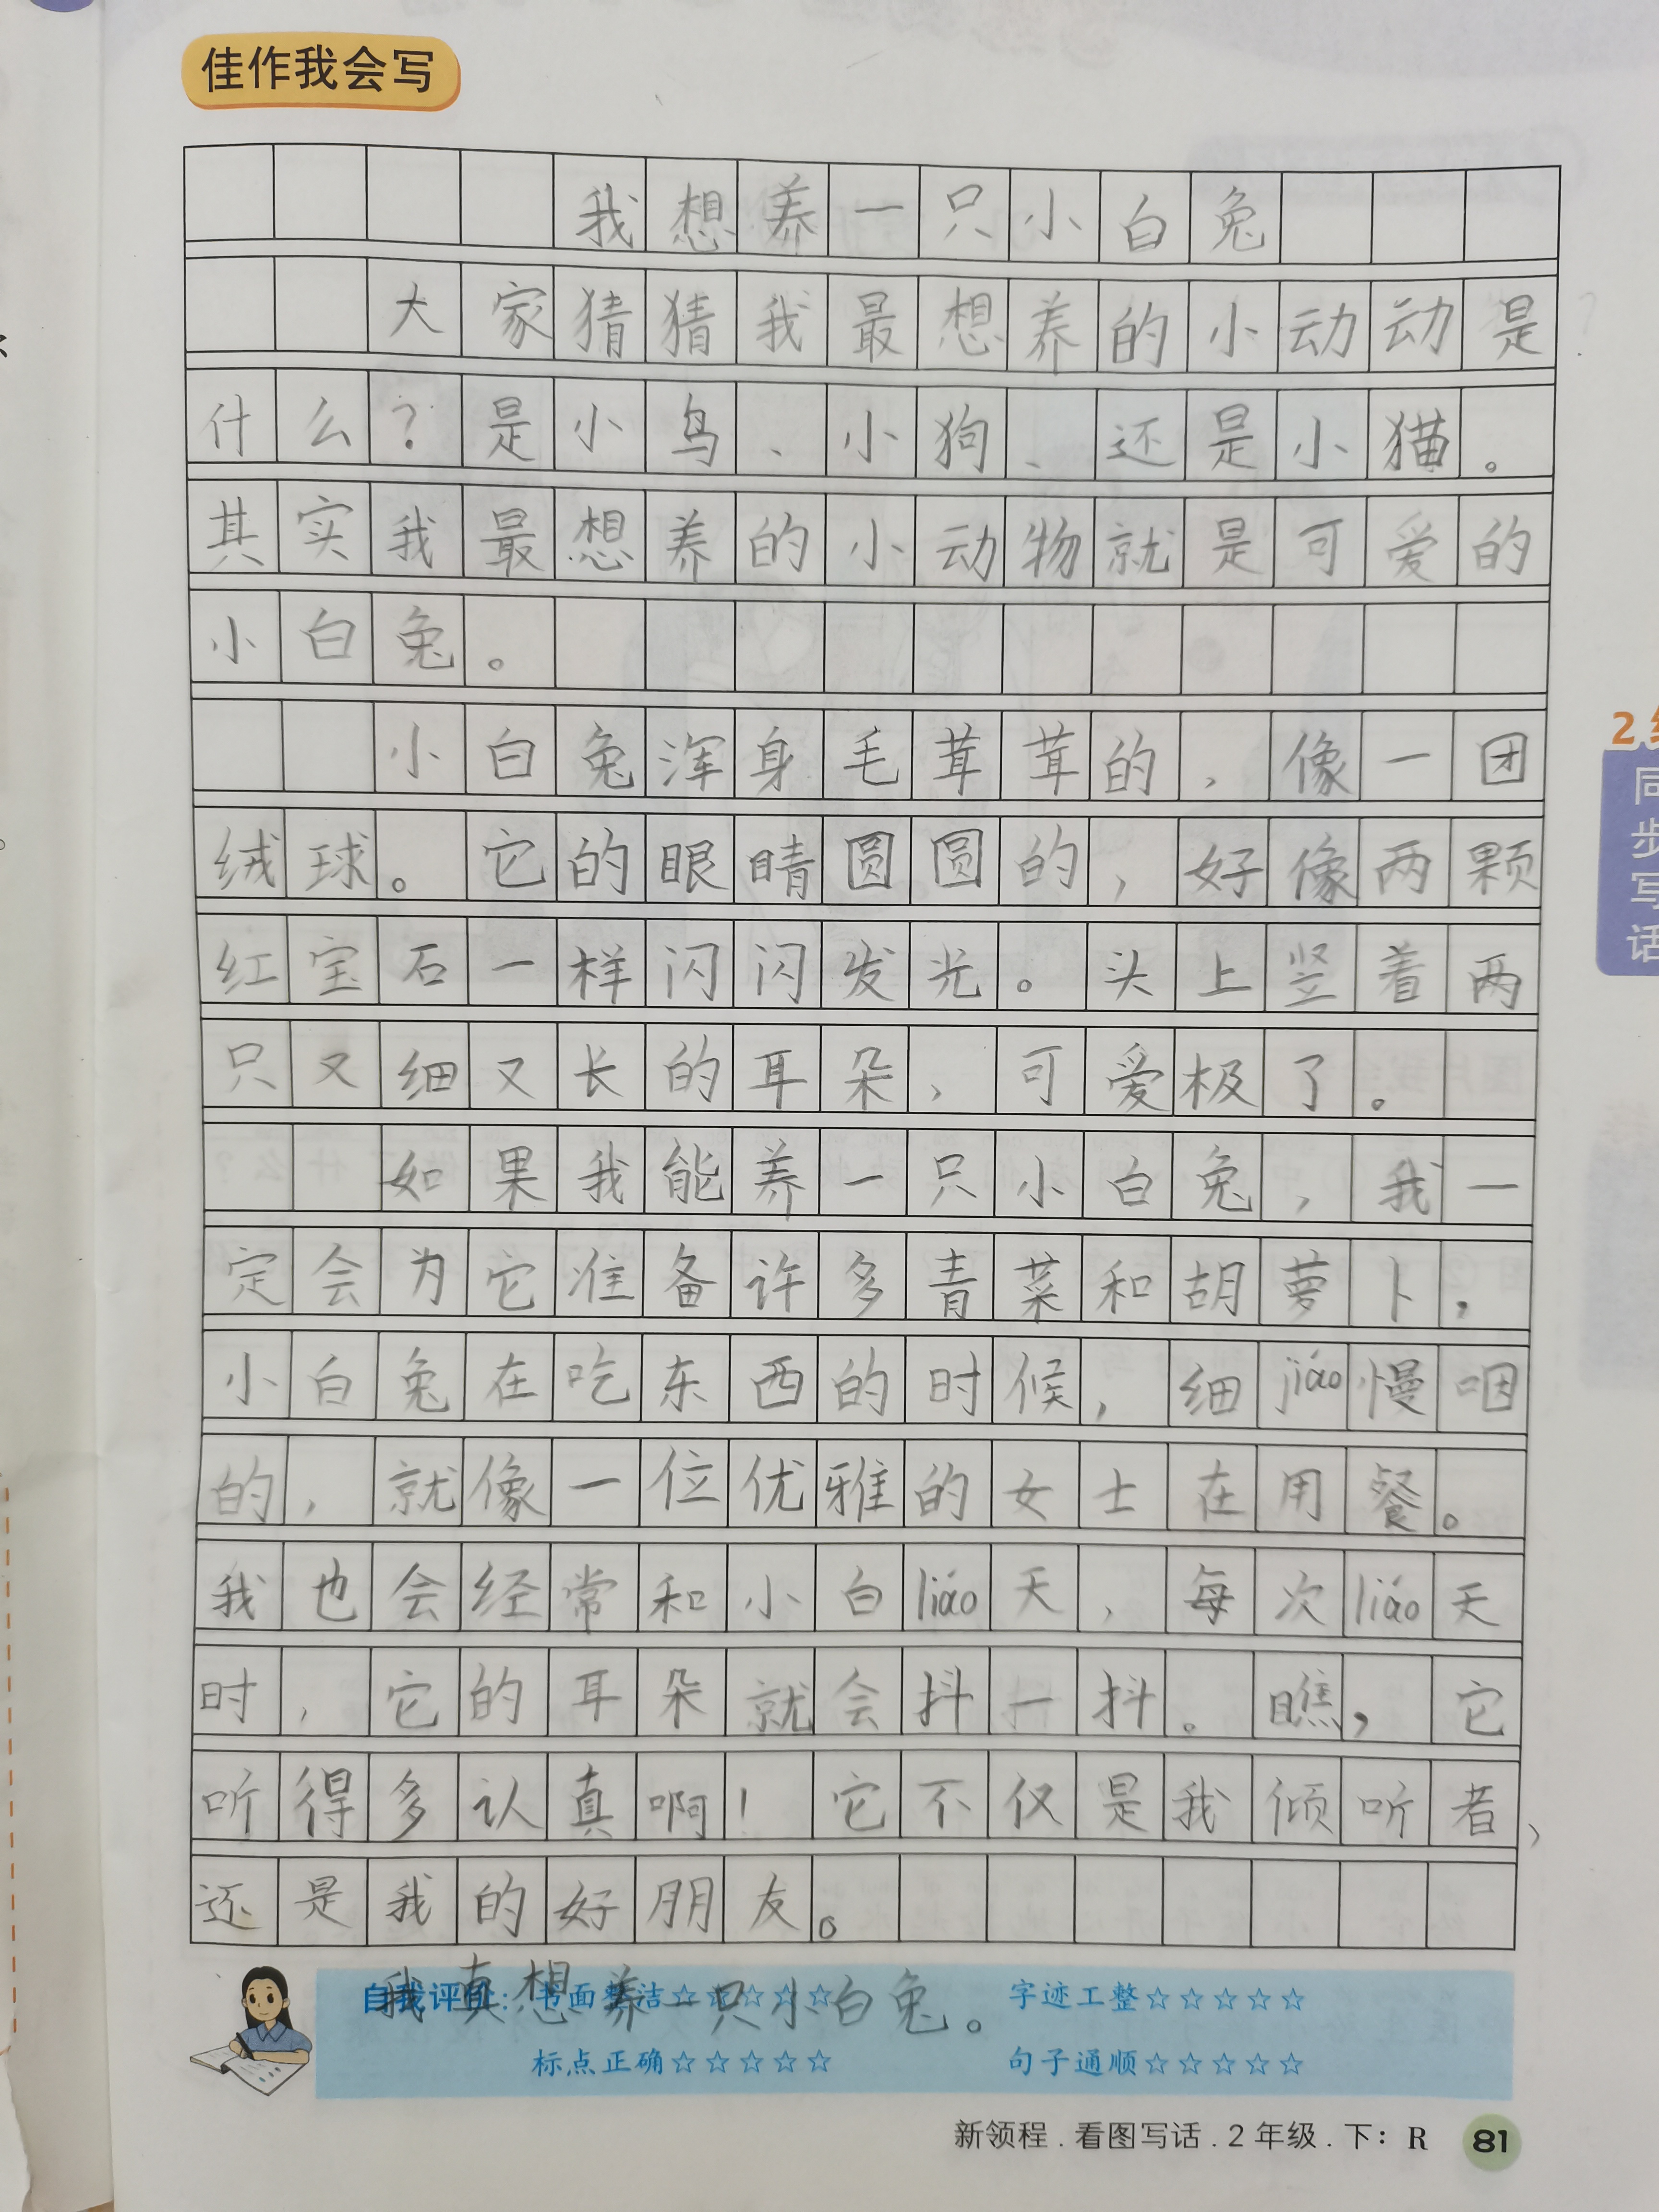 佳作我会写
我想养一只小白兔
大家猜猜我最想养的小动动是
什么？是小鸟、小狗、还是小猫。
其实我最想养的小动物就是可爱的
小白兔。
小白兔浑身毛茸茸的，像一团
绒球。它的眼睛圆圆的，好像两颗
红宝石一样闪闪发光。头上竖着两
只又细又长的耳朵，可爱极了。
如果我能养一只小白兔，我一
定会为它准备许多青菜和胡萝卜，
小白兔在吃东西的时候，细jiáo慢咽
的，就像一位优雅的女士在用餐。
我也会经常和小白liáo天，每次liáo天
时，它的耳朵就会抖一抖。瞧，它
听得多认真啊！它不仅是我倾听者，
还是我的好朋友。
我真想养一只小白兔。
自我评价：书面整洁☆☆☆☆☆ 字迹工整☆☆☆☆☆
标点正确☆☆☆☆☆ 句子通顺☆☆☆☆☆
新领程.看图写话.2年级.下：R 81
同步写话